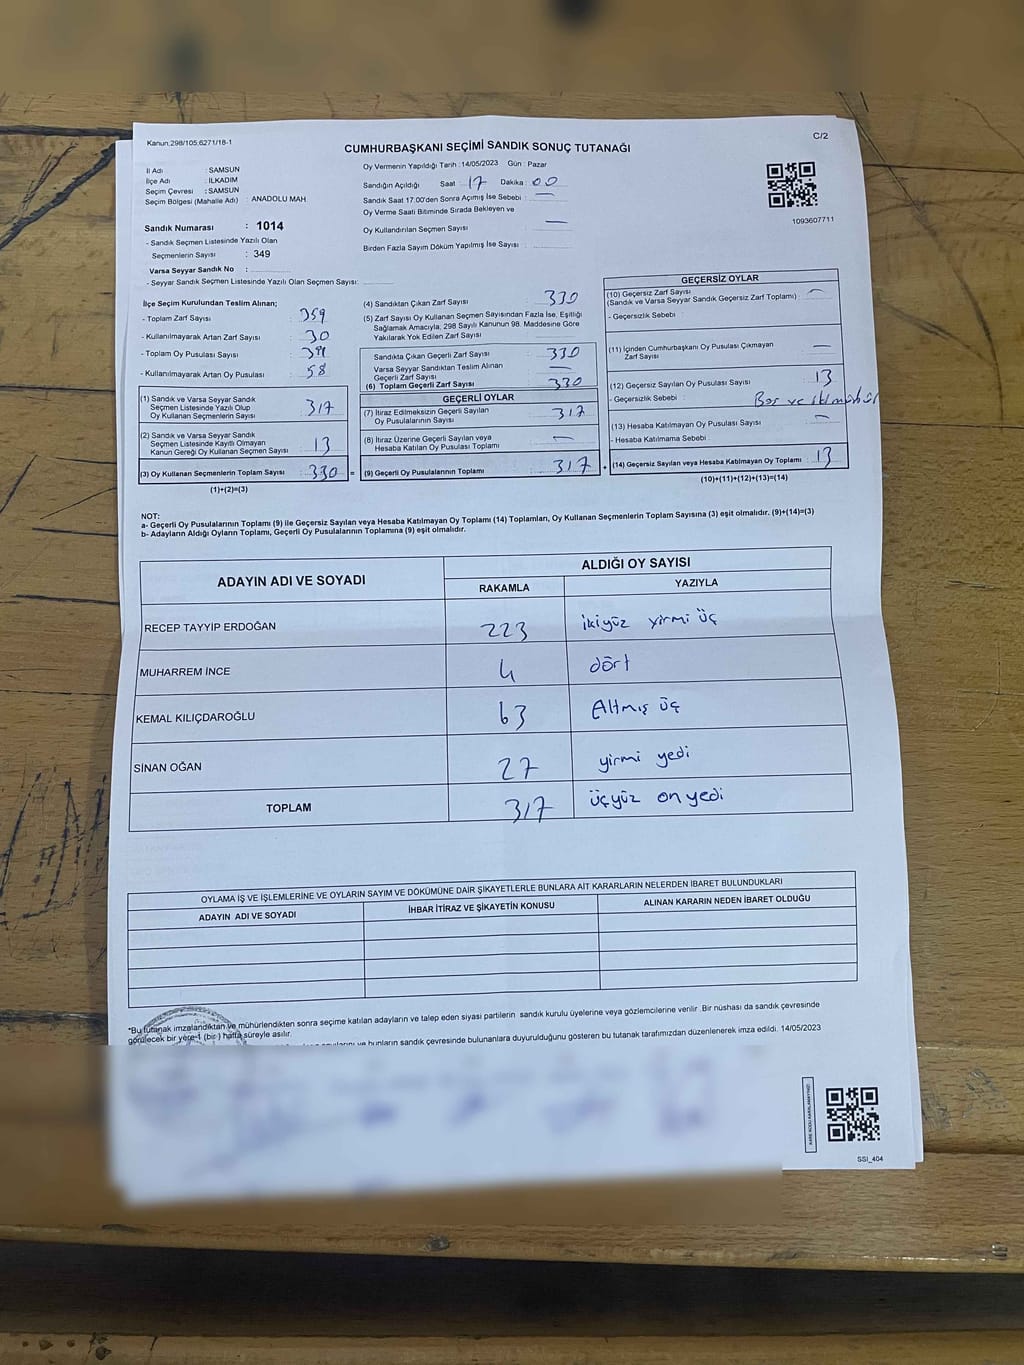 Kanun:298/105;6271/18-1
C/2
CUMHURBAŞKANI SEÇİMİ SANDIK SONUÇ TUTANAĞI
İl Adı : SAMSUN
İlçe Adı : İLKADIM
Seçim Çevresi : SAMSUN
Seçim Bölgesi (Mahalle Adı) : ANADOLU MAH
Sandık Numarası : 1014
- Sandık Seçmen Listesinde Yazılı Olan
Seçmenlerin Sayısı : 349
Varsa Seyyar Sandık No :
- Seyyar Sandık Seçmen Listesinde Yazılı Olan Seçmen Sayısı:
Oy Vermenin Yapıldığı Tarih :14/05/2023 Gün : Pazar
Sandığın Açıldığı Saat 17 Dakika : 00
Sandık Saat 17.00'den Sonra Açımış İse Sebebi : —
Oy Verme Saati Bitiminde Sırada Bekleyen ve
Oy Kullandırılan Seçmen Sayısı —
Birden Fazla Sayım Döküm Yapılmış İse Sayısı :
1093607711
İlçe Seçim Kurulundan Teslim Alınan;
- Toplam Zarf Sayısı : 359
- Kullanılmayarak Artan Zarf Sayısı : 30
- Toplam Oy Pusulası Sayısı :
- Kullanılmayarak Artan Oy Pusulası : 58
(1) Sandık ve Varsa Seyyar Sandık
Seçmen Listesinde Yazılı Olup
Oy Kullanan Seçmenlerin Sayısı : 317
(2) Sandık ve Varsa Seyyar Sandık
Seçmen Listesinde Kayıtlı Olmayan
Kanun Gereği Oy Kullanan Seçmen Sayısı : 13
(3) Oy Kullanan Seçmenlerin Toplam Sayısı : 330 =
(1)+(2)=(3)
(4) Sandıktan Çıkan Zarf Sayısı : 330
(5) Zarf Sayısı Oy Kullanan Seçmen Sayısından Fazla İse, Eşitliği
Sağlamak Amacıyla; 298 Sayılı Kanunun 98. Maddesine Göre
Yakılarak Yok Edilen Zarf Sayısı :
Sandıkta Çıkan Geçerli Zarf Sayısı : 330
Varsa Seyyar Sandıktan Teslim Alınan
Geçerli Zarf Sayısı : —
(6) Toplam Geçerli Zarf Sayısı : 330
GEÇERLİ OYLAR
(7) İtiraz Edilmeksizin Geçerli Sayılan
Oy Pusulasının Sayısı : 317
(8) İtiraz Üzerine Geçerli Sayılan veya
Hesaba Katılan Oy Pusulası Toplamı : —
(9) Geçerli Oy Pusulalarının Toplamı : 317 +
GEÇERSİZ OYLAR
(10) Geçersiz Zarf Sayısı
(Sandık ve Varsa Seyyar Sandık Geçersiz Zarf Toplamı) : —
- Geçersizlik Sebebi :
(11) İçinden Cumhurbaşkanı Oy Pusulası Çıkmayan
Zarf Sayısı : —
(12) Geçersiz Sayılan Oy Pusulası Sayısı : 13
- Geçersizlik Sebebi : Boş ve
(13) Hesaba Katılmayan Oy Pusulası Sayısı : —
- Hesaba Katılmama Sebebi :
(14) Geçersiz Sayılan veya Hesaba Katılmayan Oy Toplamı : 13
(10)+(11)+(12)+(13)=(14)
NOT:
a- Geçerli Oy Pusulalarının Toplamı (9) ile Geçersiz Sayılan veya Hesaba Katılmayan Oy Toplamı (14) Toplamları, Oy Kullanan Seçmenlerin Toplam Sayısına (3) eşit olmalıdır. (9)+(14)=(3)
b- Adayların Aldığı Oyların Toplamı, Geçerli Oy Pusulalarının Toplamına (9) eşit olmalıdır.
ADAYIN ADI VE SOYADI
ALDIĞI OY SAYISI
RAKAMLA YAZIYLA
RECEP TAYYİP ERDOĞAN 223 ikiyüz yirmi üç
MUHARREM İNCE 4 dört
KEMAL KILIÇDAROĞLU 63 Altmış üç
SİNAN OĞAN 27 yirmi yedi
TOPLAM 317 üçyüz on yedi
OYLAMA İŞ VE İŞLEMLERİNE VE OYLARIN SAYIM VE DÖKÜMÜNE DAİR ŞİKAYETLERLE BUNLARA AİT KARARLARIN NELERDEN İBARET BULUNDUKLARI
ADAYIN ADI VE SOYADI İHBAR İTİRAZ VE ŞİKAYETİN KONUSU ALINAN KARARIN NEDEN İBARET OLDUĞU
*Bu tutanak imzalandıktan ve mühürlendikten sonra seçime katılan adayların ve talep eden siyasi partilerin sandık kurulu üyelerine veya gözlemcilerine verilir. Bir nüshası da sandık çevresinde
görülecek bir yere 1 (bir ) hafta süreyle asılır.
ve bunların sandık çevresinde bulunanlara duyurulduğunu gösteren bu tutanak tarafımızdan düzenlenerek imza edildi. 14/05/2023
KARE KODU KARALAMAYINIZ!
SSI_404